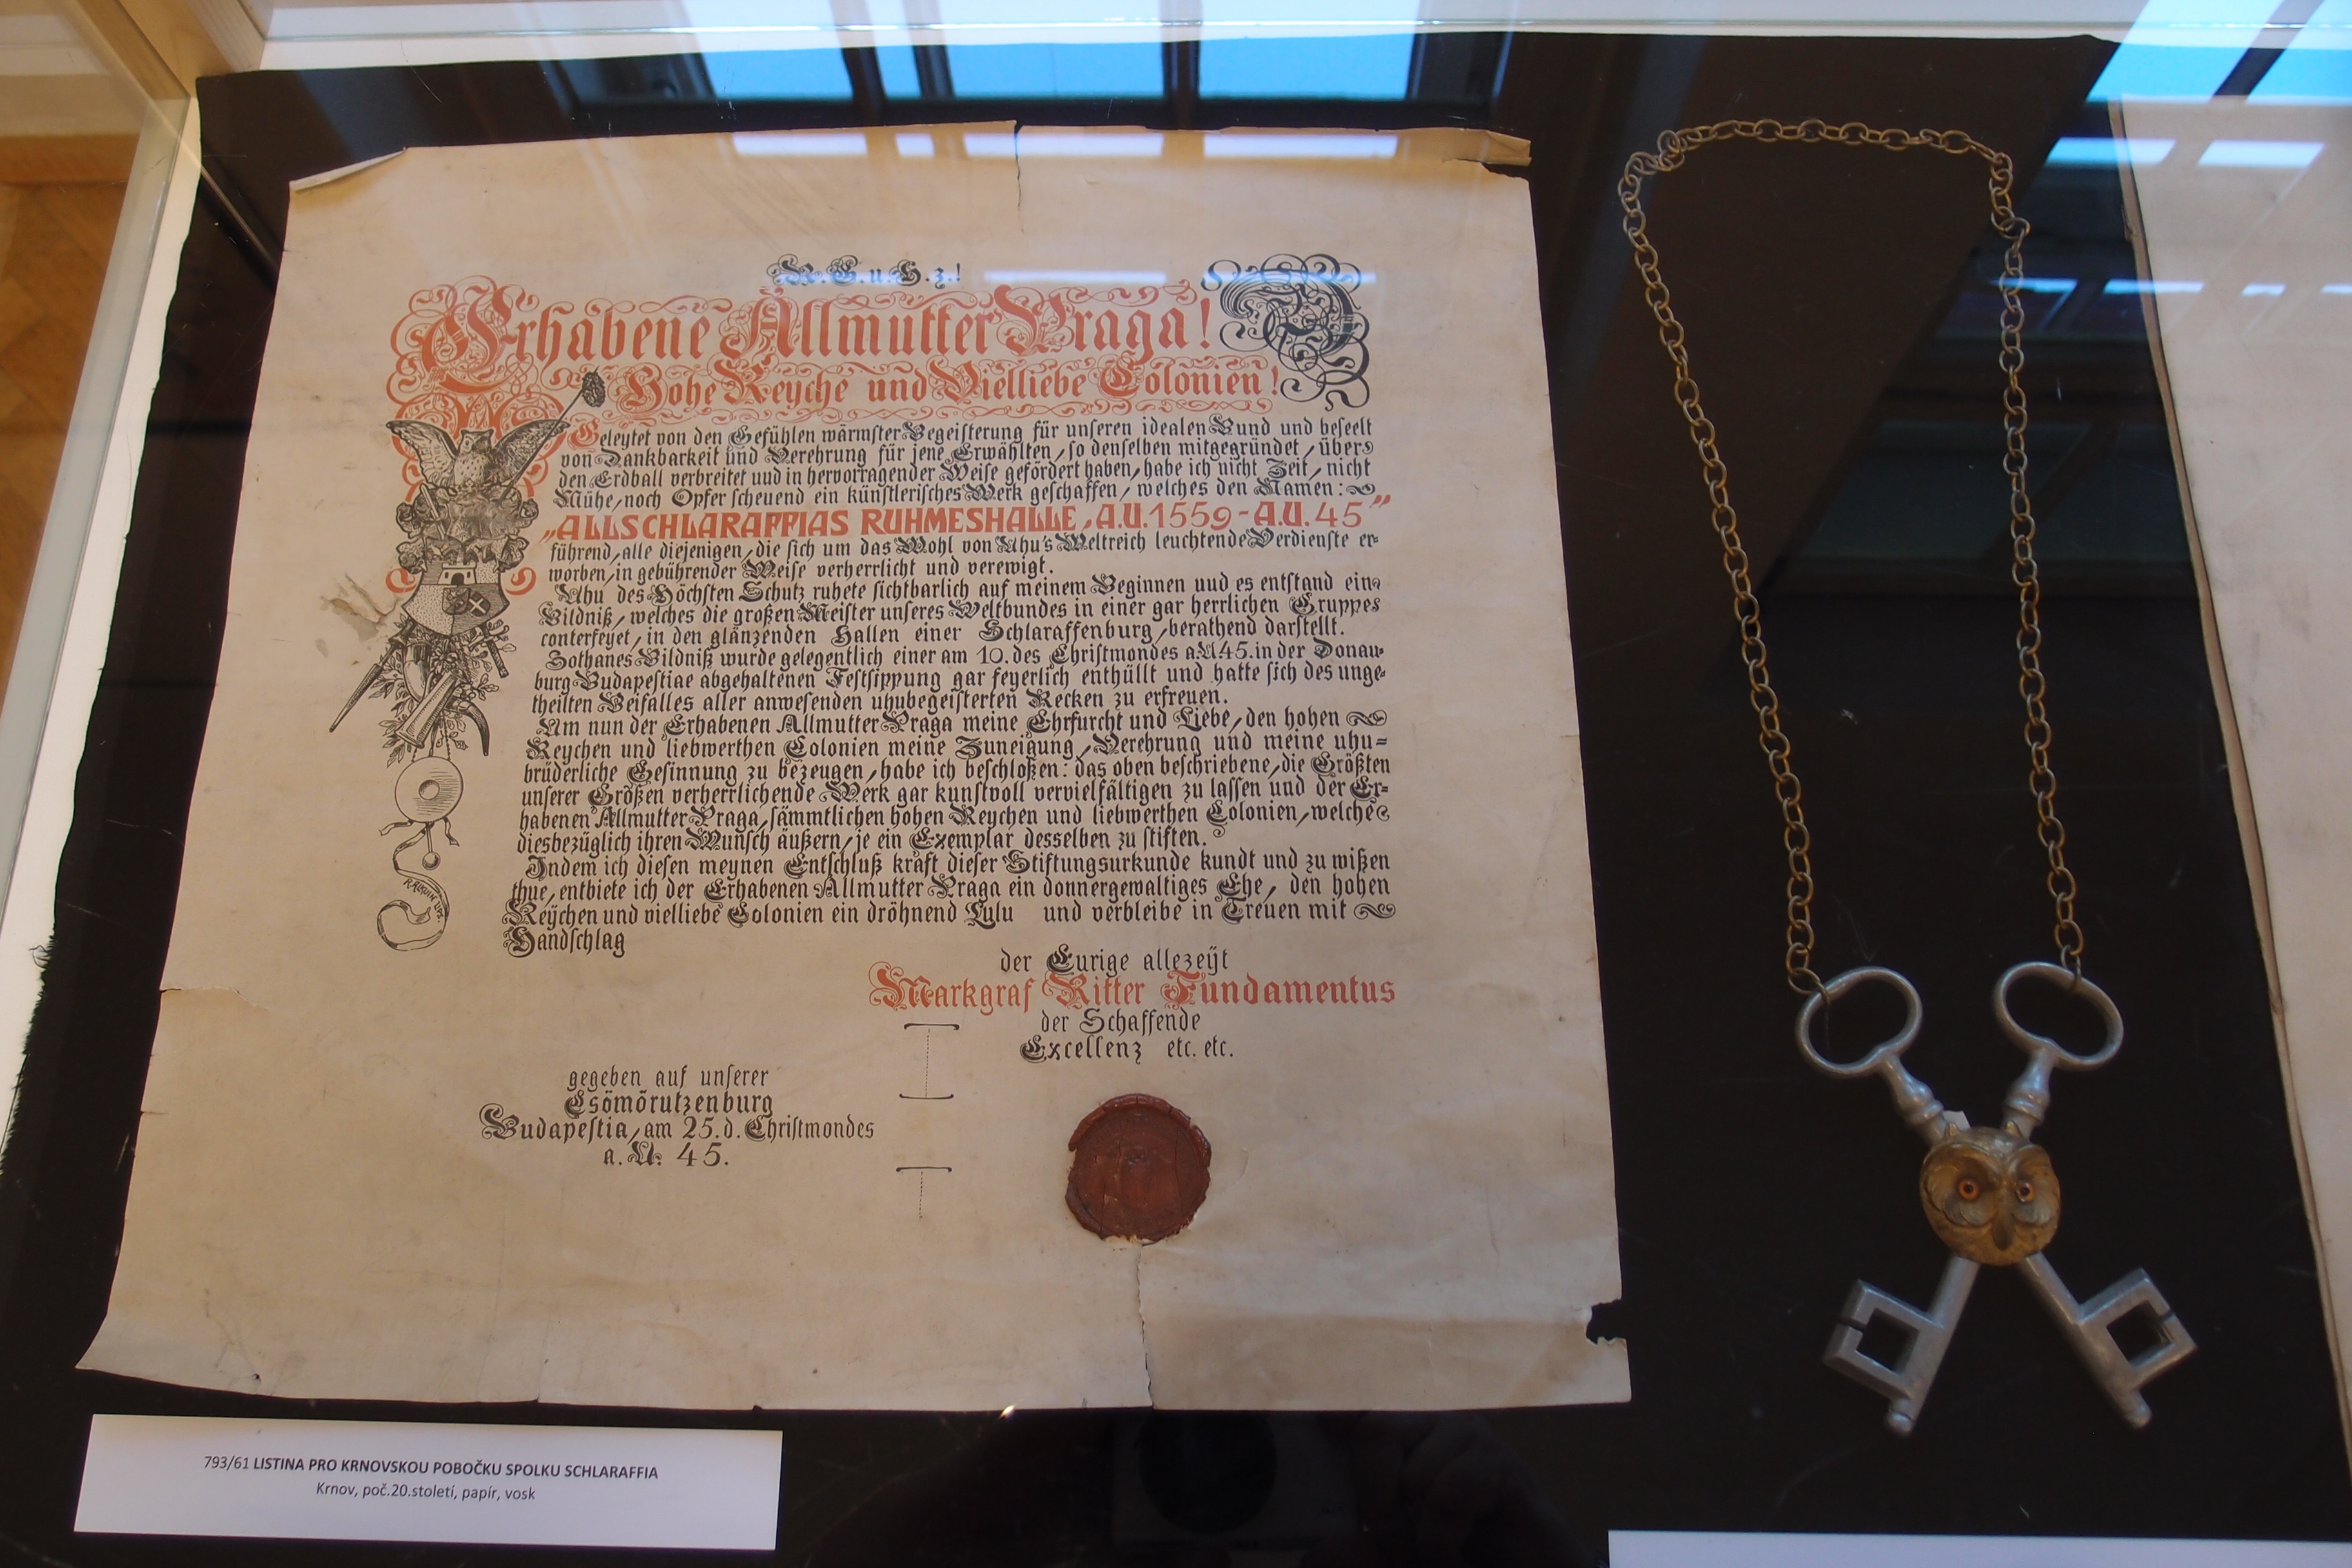 R.G.u.H.z.!
Erhabene Allmutter Praga!
Hohe Reyche und Vielliebe Colonien!
Geleytet von den Gefühlen wärmster Begeisterung für unseren idealen Bund und beseelt
von Dankbarkeit und Verehrung für jene Erwählten, so denselben mitgegründet, über
den Erdball verbreitet und in hervorragender Weise gefördert haben, habe ich nicht Zeit, nicht
Mühe, noch Opfer scheuend ein künstlerisches Werk geschaffen, welches den Namen:
„ALLSCHLARAFFIAS RUHMESHALLE, A.U.1559-A.U.45”
führend, alle diejenigen, die sich um das Wohl von Uhu's Weltreich leuchtende Verdienste er-
worben, in gebührender Weise verherrlicht und verewigt.
Uhu des Höchsten Schutz ruhete sichtbarlich auf meinem Beginnen und es entstand ein
Bildniß, welches die großen Meister unseres Weltbundes in einer gar herrlichen Gruppe
conterfeyet, in den glänzenden Hallen einer Schlaraffenburg, berathend darstellt.
Sothanes Bildniß wurde gelegentlich einer am 10. des Christmondes a.U.45. in der Donau-
burg Budapestiae abgehaltenen Festsippung gar feyerlich enthüllt und hatte sich des unge-
theilten Beifalles aller anwesenden uhubegeisterten Recken zu erfreuen.
Um nun der Erhabenen Allmutter Praga meine Ehrfurcht und Liebe, den hohen
Reychen und liebwerthen Colonien meine Zuneigung, Verehrung und meine uhu-
brüderliche Gesinnung zu bezeugen, habe ich beschloßen: das oben beschriebene, die Größten
unserer Größen verherrlichende Werk gar kunstvoll vervielfältigen zu lassen und der Er-
habenen Allmutter Praga, sämmtlichen hohen Reychen und liebwerthen Colonien, welche
diesbezüglich ihren Wunsch äußern, je ein Exemplar desselben zu stiften.
Indem ich diesen meynen Entschluß kraft dieser Stiftungsurkunde kundt und zu wißen
thue, entbiete ich der Erhabenen Allmutter Praga ein donnergewaltiges Ehe, den hohen
Reÿchen und vielliebe Colonien ein dröhnend Lulu und verbleibe in Treuen mit
Handschlag
der Eurige allezeÿt
Markgraf Ritter Fundamentus
der Schaffende
Excellenz etc. etc.
gegeben auf unserer
Csömörutzenburg
Budapestia, am 25. d. Christmondes
a. U. 45.
793/61 LISTINA PRO KRNOVSKOU POBOČKU SPOLKU SCHLARAFFIA
Krnov, poč.20.století, papír, vosk